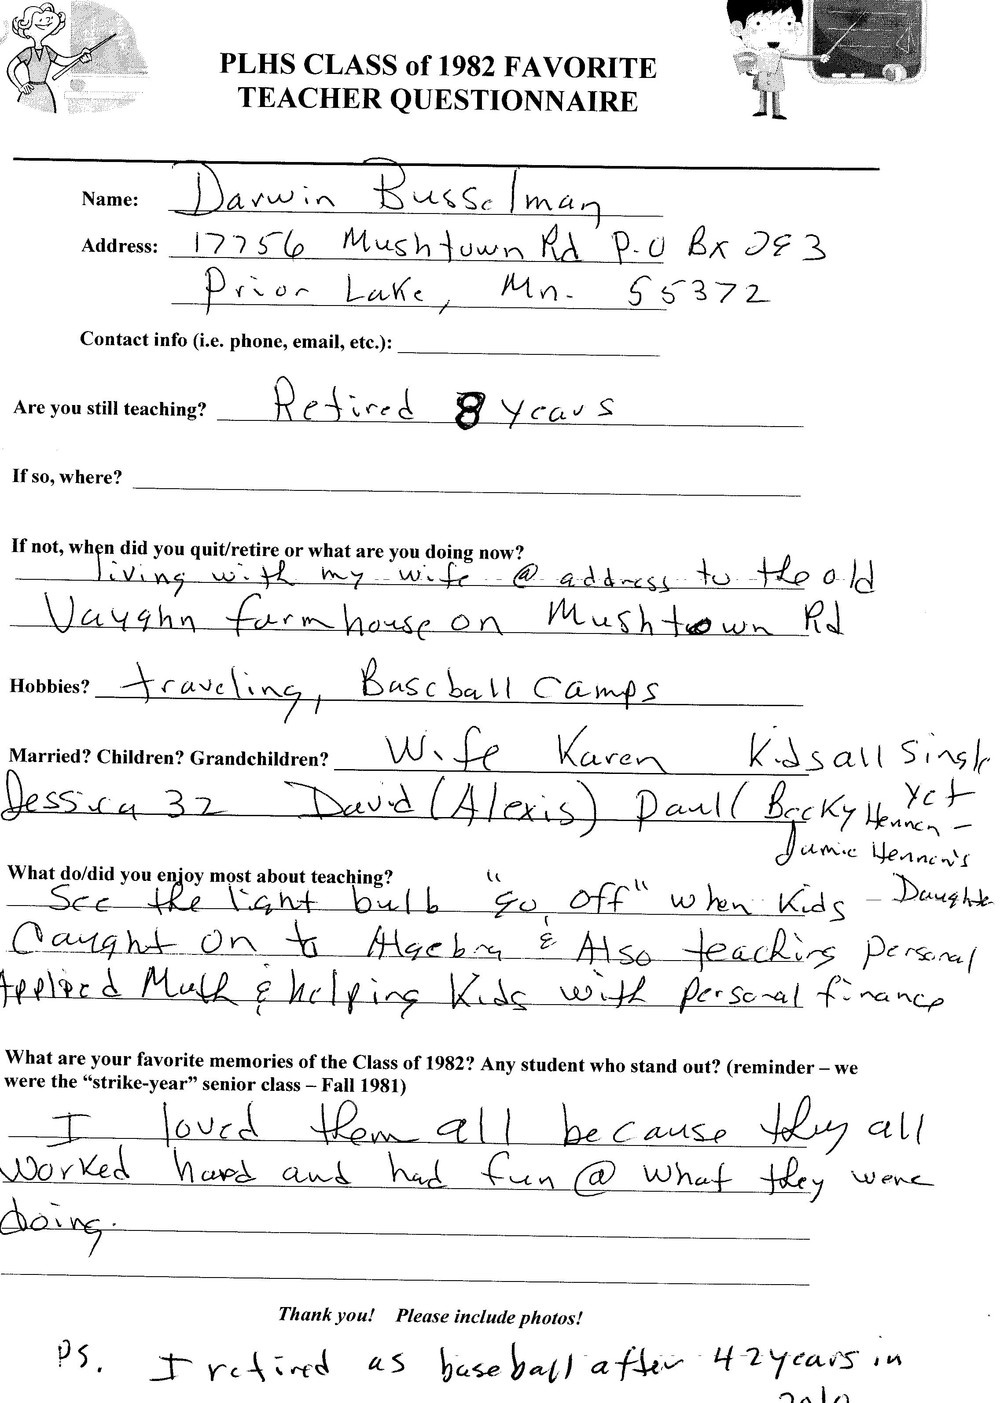 PLHS CLASS of 1982 FAVORITE
TEACHER QUESTIONNAIRE
Name: Darwin Busselman
Address: 17756 Mushtown Rd P.O Bx 283
Prior Lake, Mn. 55372
Contact info (i.e. phone, email, etc.):
Are you still teaching? Retired 8 years
If so, where?
If not, when did you quit/retire or what are you doing now?
living with my wife @ address to the old
Vaughn farmhouse on Mushtown Rd
Hobbies? traveling, Baseball Camps
Married? Children? Grandchildren? Wife Karen Kids all Single
yet
Jessica 32 David (Alexis) Paul (Becky Hennen –
Jamie Hennen's
Daughter
What do/did you enjoy most about teaching?
See the light bulb "go off" when Kids
Caught on to Algebra & Also teaching personal
Applied Math & helping Kids with personal finance
What are your favorite memories of the Class of 1982? Any student who stand out? (reminder – we
were the “strike-year” senior class – Fall 1981)
I loved them all because they all
worked hard and had fun @ what they were
doing.
Thank you! Please include photos!
PS. I retired as baseball after 42 years in